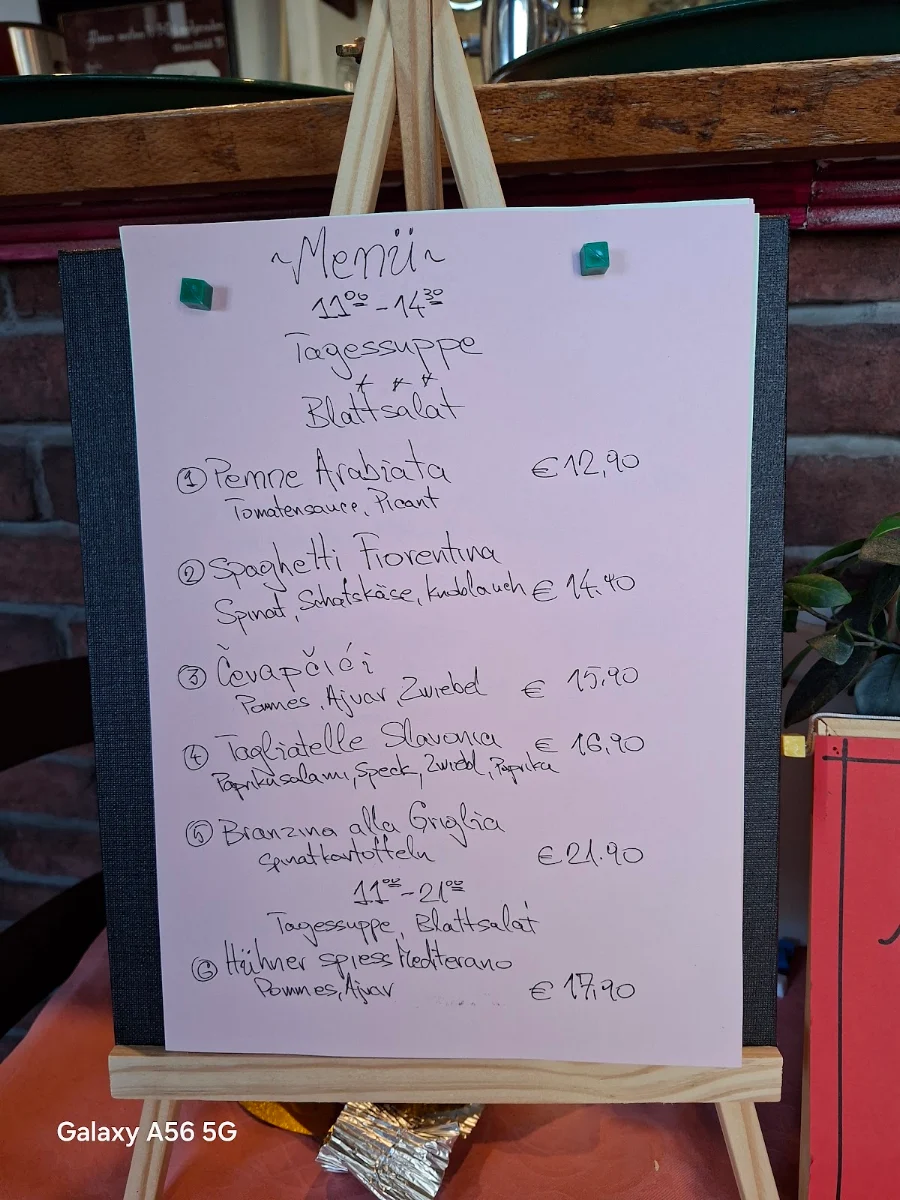 ~Menü~
11⁰⁰ - 14³⁰
Tagessuppe
* * *
Blattsalat
① Penne Arabiata € 12,90
Tomatensauce, Picant
② Spaghetti Fiorentina
Spinat, Schafskäse, Knoblauch € 14.40
③ Čevapčići
Pommes, Ajvar, Zwiebel € 15,90
④ Tagliatelle Slavonia € 16,90
Paprikasalami, Speck, Zwiebl, Paprika
⑤ Branzina alla Griglia
Spinatkartoffeln € 21.90
11⁰⁰ - 21⁰⁰
Tagessuppe, Blattsalat
⑥ Hühner spiess Mediterano
Pommes, Ajvar € 17,90
Galaxy A56 5G